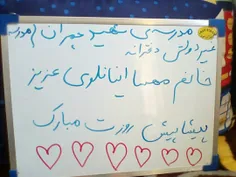 مدرسه‌ی شهید چمران
غیر دولتی دخترانه
خانم مهسا ایانلوی عزیز
پیشاپیش روزت مبارک